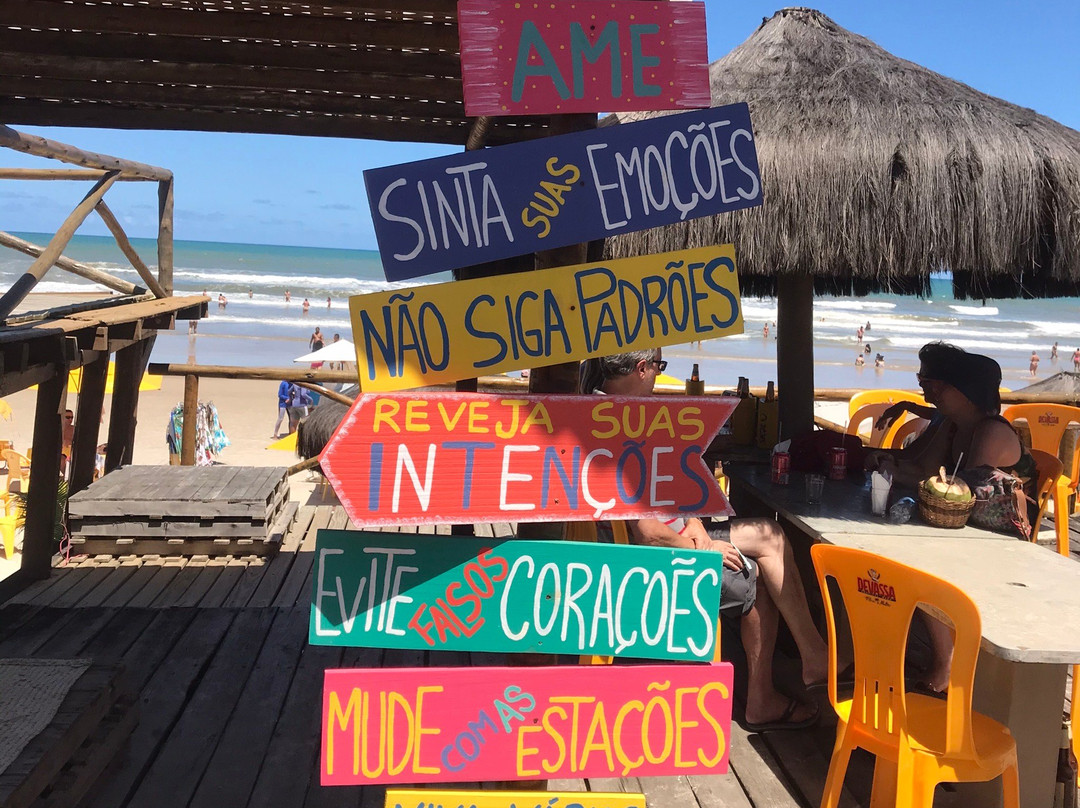 AME
SINTA SUAS EMOÇÕES
NÃO SIGA PADRÕES
REVEJA SUAS
INTENÇÕES
EVITE FALSOS CORAÇÕES
MUDE COM AS ESTAÇÕES
DEVASSA